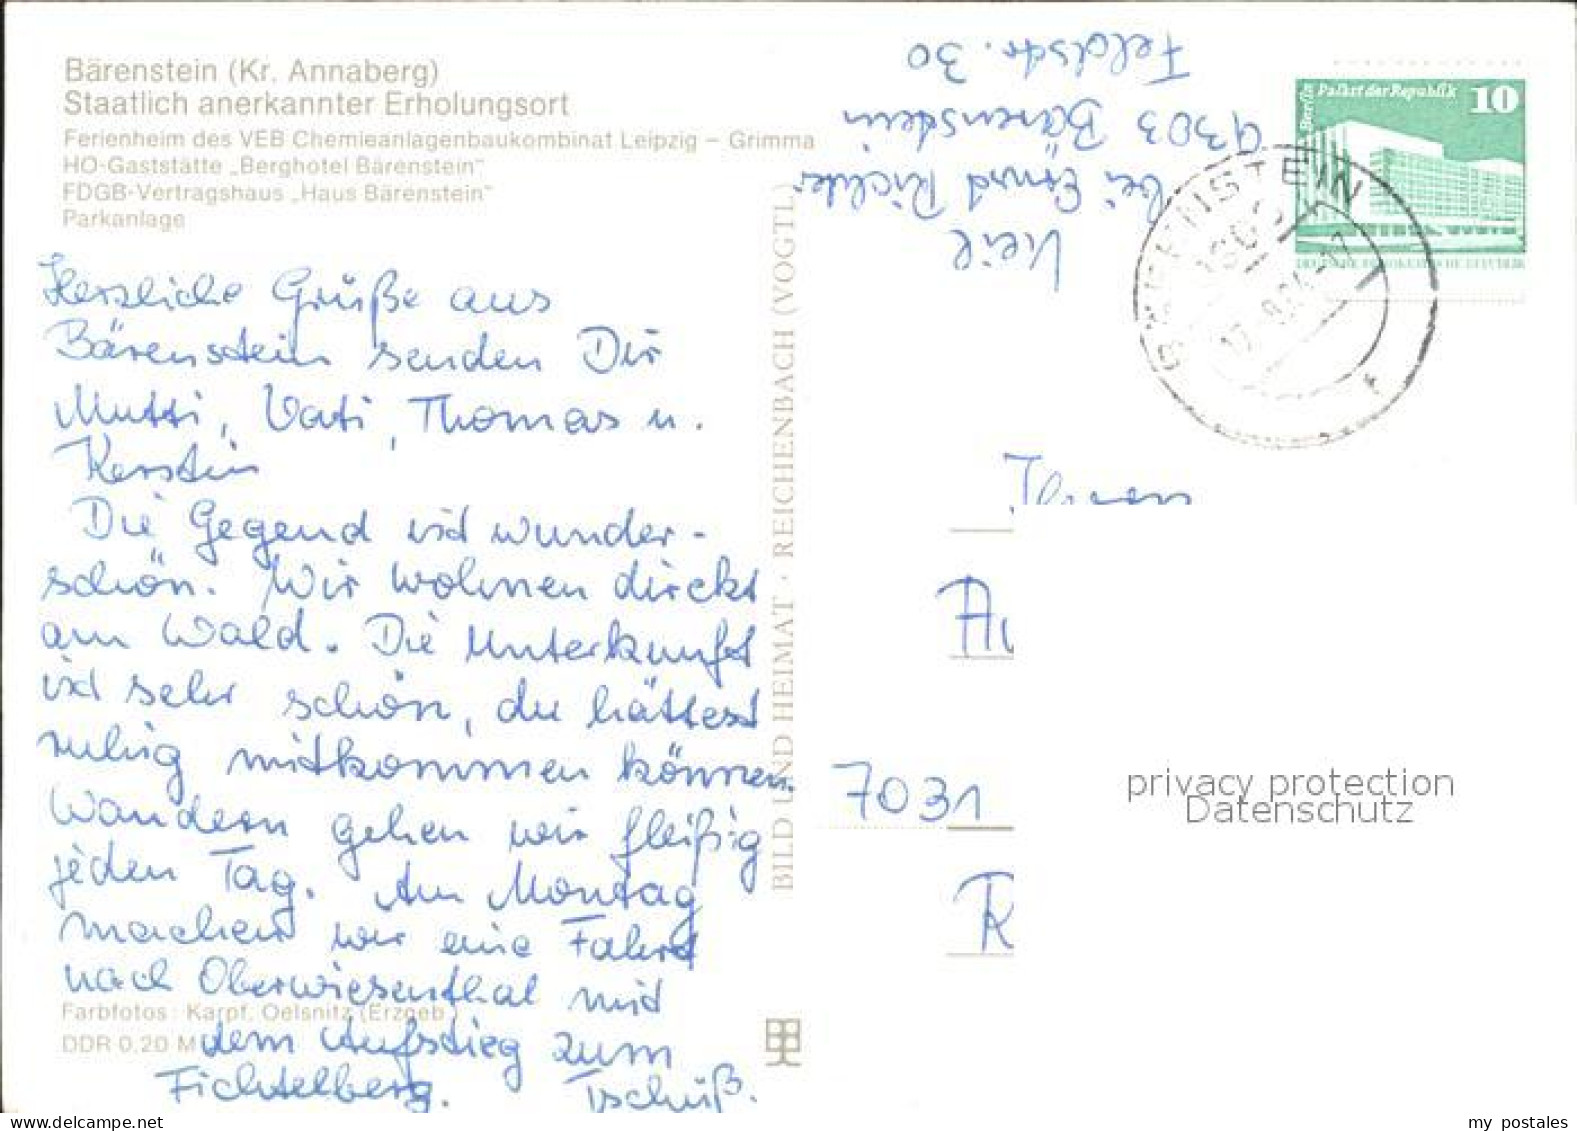 Bärenstein (Kr. Annaberg)
Staatlich anerkannter Erholungsort
Ferienheim des VEB Chemieanlagenbaukombinat Leipzig – Grimma
HO-Gaststätte „Berghotel Bärenstein“
FDGB-Vertragshaus „Haus Bärenstein“
Parkanlage
Herzliche Grüße aus
Bärenstein senden Dir
Mutti, Vati, Thomas u.
Kerstin
Die Gegend ist wunder-
schön. Wir wohnen direkt
am Wald. Die Unterkunft
ist sehr schön, du hättest
ruhig mitkommen können.
Wandern gehen wir fleißig
jeden Tag. Am Montag
machen wir eine Fahrt
nach Oberwiesenthal mit
dem Aufstieg zum
Fichtelberg. Tschüß.
Farbfotos: Karpf, Oelsnitz (Erzgeb.)
DDR 0,20 M
BILD UND HEIMAT · REICHENBACH (VOGTL)
Keil
bei Ernst Richter
9303 Bärenstein
Feldstr. 30
Berlin Palast der Republik 10
DEUTSCHE DEMOKRATISCHE REPUBLIK
BÄRENSTEIN
7031
privacy protection
Datenschutz
my postales